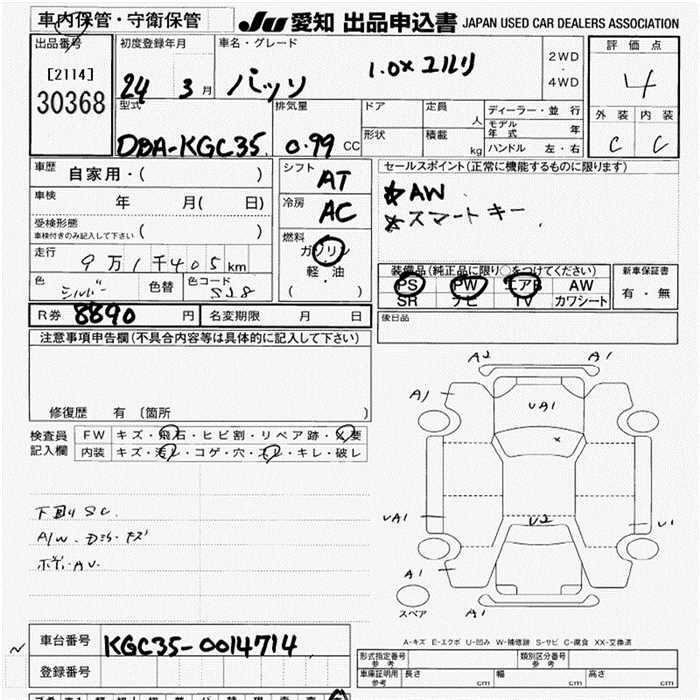 車内保管・守衛保管
JU 愛知 出品申込書 JAPAN USED CAR DEALERS ASSOCIATION
出品番号
[2114]
30368
初度登録年月
24 3 月
車名・グレード
パッソ 1.0X ユルリ
2WD
・
4WD
評価点
4
外装 内装
C C
型式
DBA-KGC35
排気量
0.99 CC
ドア
定員 人
形状
積載 kg
ディーラー・並 行
モデル年式 年
ハンドル 左・右
車歴 自家用・( )
車検 年 月( 日)
受検形態
車検付きのみ記入して下さい ( )
走行
9万1千405km
色 シルバー 色替 色コード S28
シフト AT
冷房 AC
燃料
ガソリン
軽・油
( )
セールスポイント(正常に機能するものに限ります)
★AW
★スマートキー
装備品(純正品に限り○をつけてください)
PS PW エアB AW
SR ナビ TV カワシート
新車保証書
有・無
R券 8890 円 名変期限 月 日
後日品
注意事項申告欄(不具合内容等は具体的に記入して下さい)
修復歴 有 (箇所 )
検査員
記入欄
FW キズ・飛石・ヒビ割・リペア跡・X要
内装 キズ・汚レ・コゲ・穴・スレ・キレ・破レ
下回りSC
A/W
A2 A1
A1
UA1
UA1
U2
U1
A1
A1
スペア
A-キズ E-エクボ U-凹み W-補修跡 S-サビ C-腐食 XX-交換済
車台番号 KGC35-0014714
登録番号
形式指定番号
参考
類別区分番号
参考
車庫証明用
参考
長さ cm 幅 cm 高さ cm